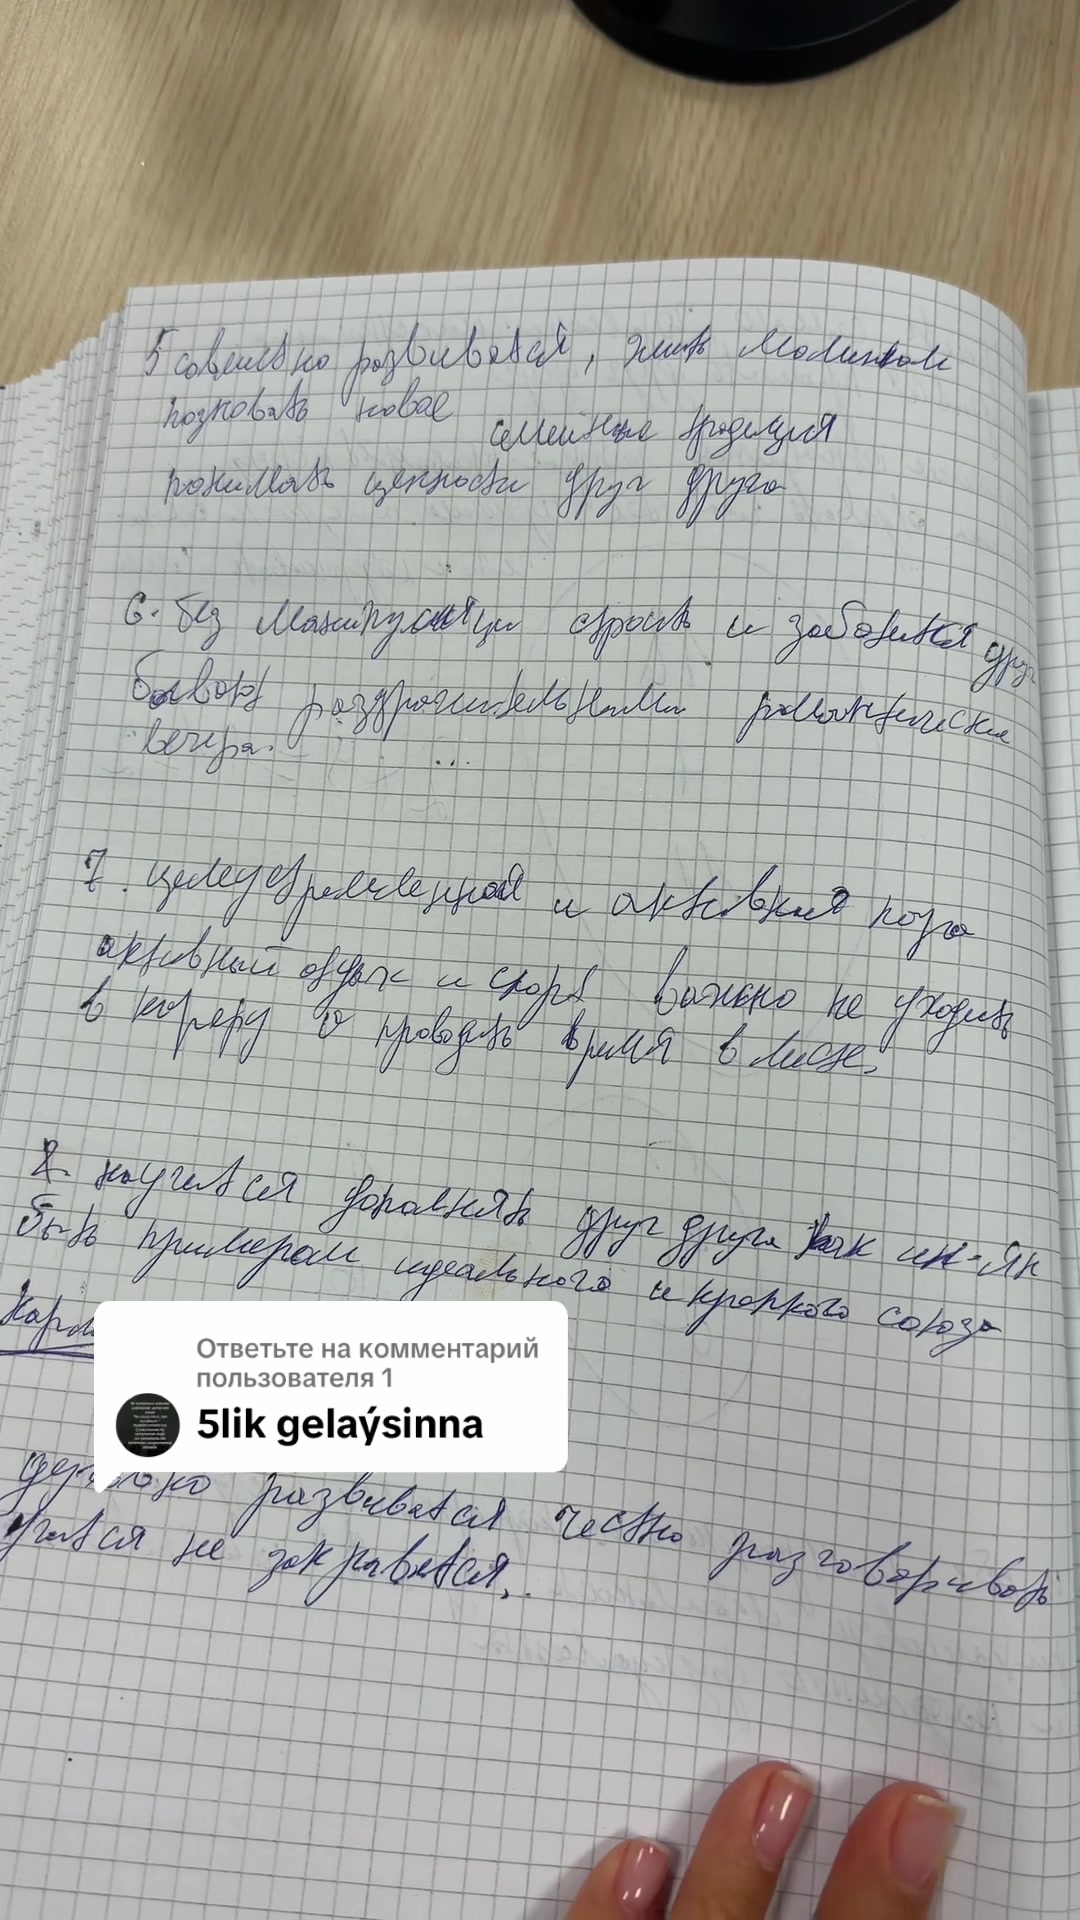 5 совместно развиватся, жить
позновать новое
семейные традиция
понимать ценности друг друга
6. без манипуляции страсть и заботится друг
бывают раздрожительными романтические
вечера. ...
7. целеустремленная и активная пара
активный отдых и спорт важно не уходить
в карьеру и проводить время в месте.
8. научится дополнять друг друга как ин-ян
быть примером идеального и крепкого союза
Карм
Ответьте на комментарий
пользователя 1
5lik gelaýsinna
развиватся честно разговоривать
учится не закрыватся..